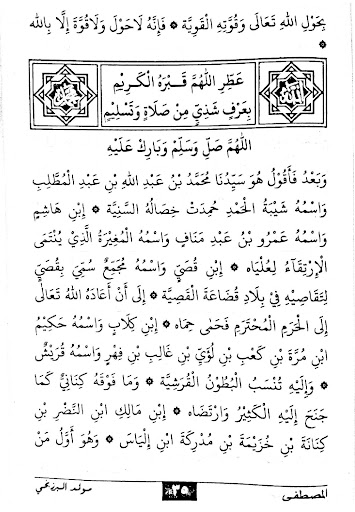 بِحَوْلِ اللهِ تَعَالَى وَقُوَّتِهِ الْقَوِيَّةِ * فَإِنَّهُ لَاحَوْلَ وَلَاقُوَّةَ إِلَّا بِاللهِ
*
اللّٰه عَطِّرِ اللّٰهُمَّ قَبْرَهُ الْكَرِيْمِ محمد
بِعَرْفٍ شَذِيٍّ مِنْ صَلَاةٍ وَتَسْلِيْمٍ
اَللّٰهُمَّ صَلِّ وَسَلِّمْ وَبَارِكْ عَلَيْهِ
وَبَعْدُ فَأَقُوْلُ هُوَ سَيِّدُنَا مُحَمَّدُ بْنُ عَبْدِ اللهِ بْنِ عَبْدِ الْمُطَّلِبِ
وَاسْمُهُ شَيْبَةُ الْحَمْدِ حُمِدَتْ خِصَالُهُ السَّنِيَّةِ * اِبْنِ هَاشِمٍ
وَاسْمُهُ عَمْرُو بْنُ عَبْدِ مَنَافٍ وَاسْمُهُ الْمُغِيْرَةُ الَّذِيْ يُنْتَمَى
الْإِرْتِقَاءُ لِعُلْيَاهِ * اِبْنِ قُصَيٍّ وَاسْمُهُ مُجَمِّعٌ سُمِّيَ بِقُصَيٍّ
لِتَقَاصِيْهِ فِيْ بِلَادِ قُضَاعَةَ الْقَصِيَّةِ * إِلَى أَنْ أَعَادَهُ اللهُ تَعَالَى
إِلَى الْحَرَمِ الْمُحْتَرَمِ فَحَمَى حِمَاهُ * اِبْنِ كِلَابٍ وَاسْمُهُ حَكِيْمُ
ابْنِ مُرَّةَ بْنِ كَعْبِ بْنِ لُؤَيِّ بْنِ غَالِبِ بْنِ فِهْرٍ وَاسْمُهُ قُرَيْشٌ
* وَإِلَيْهِ تُنْسَبُ الْبُطُوْنُ الْقُرَشِيَّةِ * وَمَا فَوْقَهُ كِنَانِيٌّ كَمَا
جَنَحَ إِلَيْهِ الْكَثِيْرُ وَارْتَضَاهُ * اِبْنِ مَالِكِ ابْنِ النَّضْرِ بْنِ
كِنَانَةَ بْنِ خُزَيْمَةَ بْنِ مُدْرِكَةَ ابْنِ إِلْيَاسَ * وَهُوَ أَوَّلُ مَنْ
المصطفى ٣٥ مولد البرزنجي